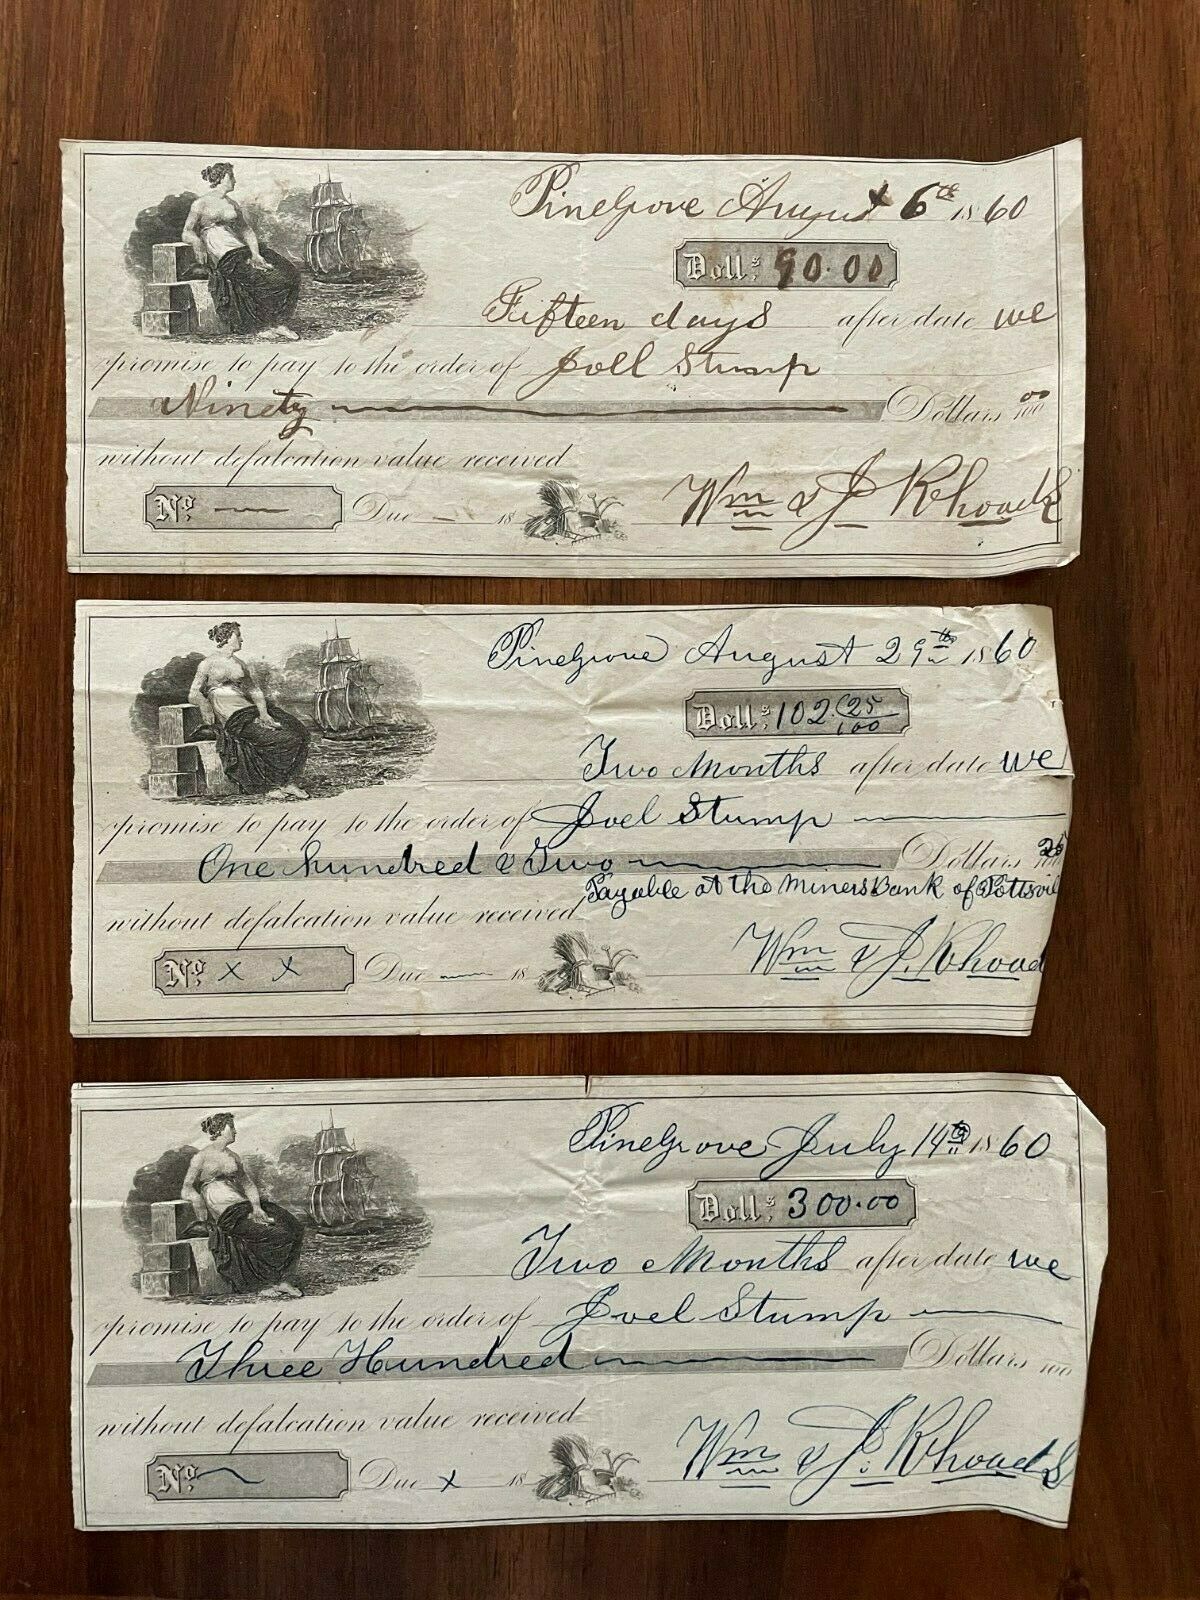 PineGrove August 6th 1860
Doll:s 90.00
Fifteen days after date we
promise to pay to the order of Joel Stump
Ninety Dollars 00/100
without defalcation value received
No. — Due — 18 Wm & J Rhoads
PineGrove August 29th 1860
Doll:s 102 25/100
Two Months after date we
promise to pay to the order of Joel Stump
One hundred & Two Dollars 25/100
Payable at the Miners Bank of Pottsvil
without defalcation value received
No. x x Due — 18 Wm & J. Rhoad
PineGrove July 14th 1860
Doll:s 300.00
Two Months after date we
promise to pay to the order of Joel Stump
Three Hundred Dollars 100
without defalcation value received
No. Due x 18 Wm & J. Rhoads